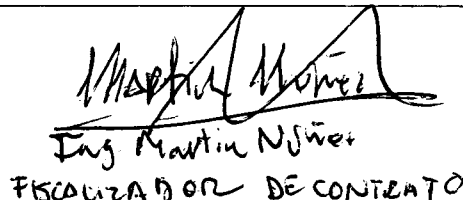 Martin Núñez
Ing Martin Núñez
FISCALIZADOR DE CONTRATO